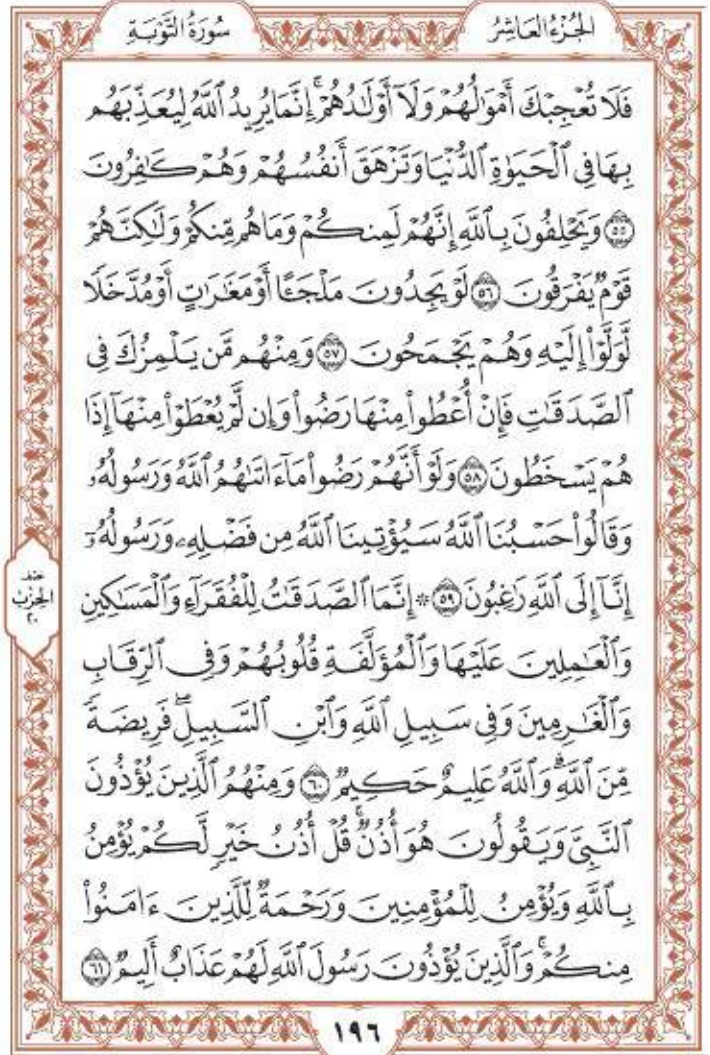 الجُزْءُ العَاشِرُ
سُورَةُ التَّوْبَةِ
فَلَا تُعْجِبْكَ أَمْوَٰلُهُمْ وَلَآ أَوْلَٰدُهُمْ ۚ إِنَّمَا يُرِيدُ ٱللَّهُ لِيُعَذِّبَهُم
بِهَا فِي ٱلْحَيَوٰةِ ٱلدُّنْيَا وَتَزْهَقَ أَنفُسُهُمْ وَهُمْ كَٰفِرُونَ
٥٥ وَيَحْلِفُونَ بِٱللَّهِ إِنَّهُمْ لَمِنكُمْ وَمَا هُم مِّنكُمْ وَلَٰكِنَّهُمْ
قَوْمٌ يَفْرَقُونَ ٥٦ لَوْ يَجِدُونَ مَلْجَـًٔا أَوْ مَغَٰرَٰتٍ أَوْ مُدَّخَلًا
لَّوَلَّوْا۟ إِلَيْهِ وَهُمْ يَجْمَحُونَ ٥٧ وَمِنْهُم مَّن يَلْمِزُكَ فِي
ٱلصَّدَقَٰتِ فَإِنْ أُعْطُوا۟ مِنْهَا رَضُوا۟ وَإِن لَّمْ يُعْطَوْا۟ مِنْهَآ إِذَا
هُمْ يَسْخَطُونَ ٥٨ وَلَوْ أَنَّهُمْ رَضُوا۟ مَآ ءَاتَىٰهُمُ ٱللَّهُ وَرَسُولُهُۥ
وَقَالُوا۟ حَسْبُنَا ٱللَّهُ سَيُؤْتِينَا ٱللَّهُ مِن فَضْلِهِۦ وَرَسُولُهُۥٓ
إِنَّآ إِلَى ٱللَّهِ رَٰغِبُونَ ٥٩ ۞ إِنَّمَا ٱلصَّدَقَٰتُ لِلْفُقَرَآءِ وَٱلْمَسَٰكِينِ
وَٱلْعَٰمِلِينَ عَلَيْهَا وَٱلْمُؤَلَّفَةِ قُلُوبُهُمْ وَفِي ٱلرِّقَابِ
وَٱلْغَٰرِمِينَ وَفِي سَبِيلِ ٱللَّهِ وَٱبْنِ ٱلسَّبِيلِ ۖ فَرِيضَةً
مِّنَ ٱللَّهِ ۗ وَٱللَّهُ عَلِيمٌ حَكِيمٌ ٦٠ وَمِنْهُمُ ٱلَّذِينَ يُؤْذُونَ
ٱلنَّبِيَّ وَيَقُولُونَ هُوَ أُذُنٌ ۚ قُلْ أُذُنُ خَيْرٍ لَّكُمْ يُؤْمِنُ
بِٱللَّهِ وَيُؤْمِنُ لِلْمُؤْمِنِينَ وَرَحْمَةٌ لِّلَّذِينَ ءَامَنُوا۟
مِنكُمْ ۚ وَٱلَّذِينَ يُؤْذُونَ رَسُولَ ٱللَّهِ لَهُمْ عَذَابٌ أَلِيمٌ ٦١
الحِزْبِ
٢٠
١٩٦